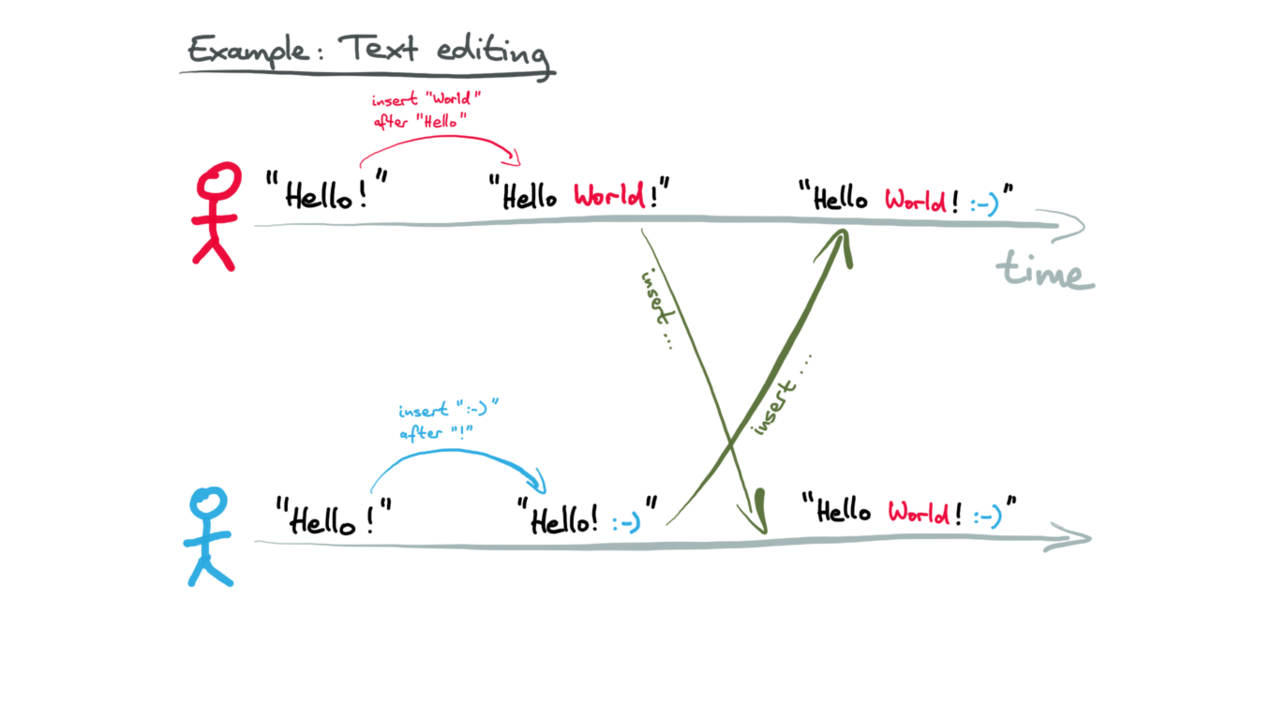 Example: Text editing
insert "World"
after "Hello"
"Hello!" "Hello World!" "Hello World! :-)"
time
insert ...
insert ....
insert ":-)"
after "!"
"Hello!" "Hello! :-)" "Hello World! :-)"